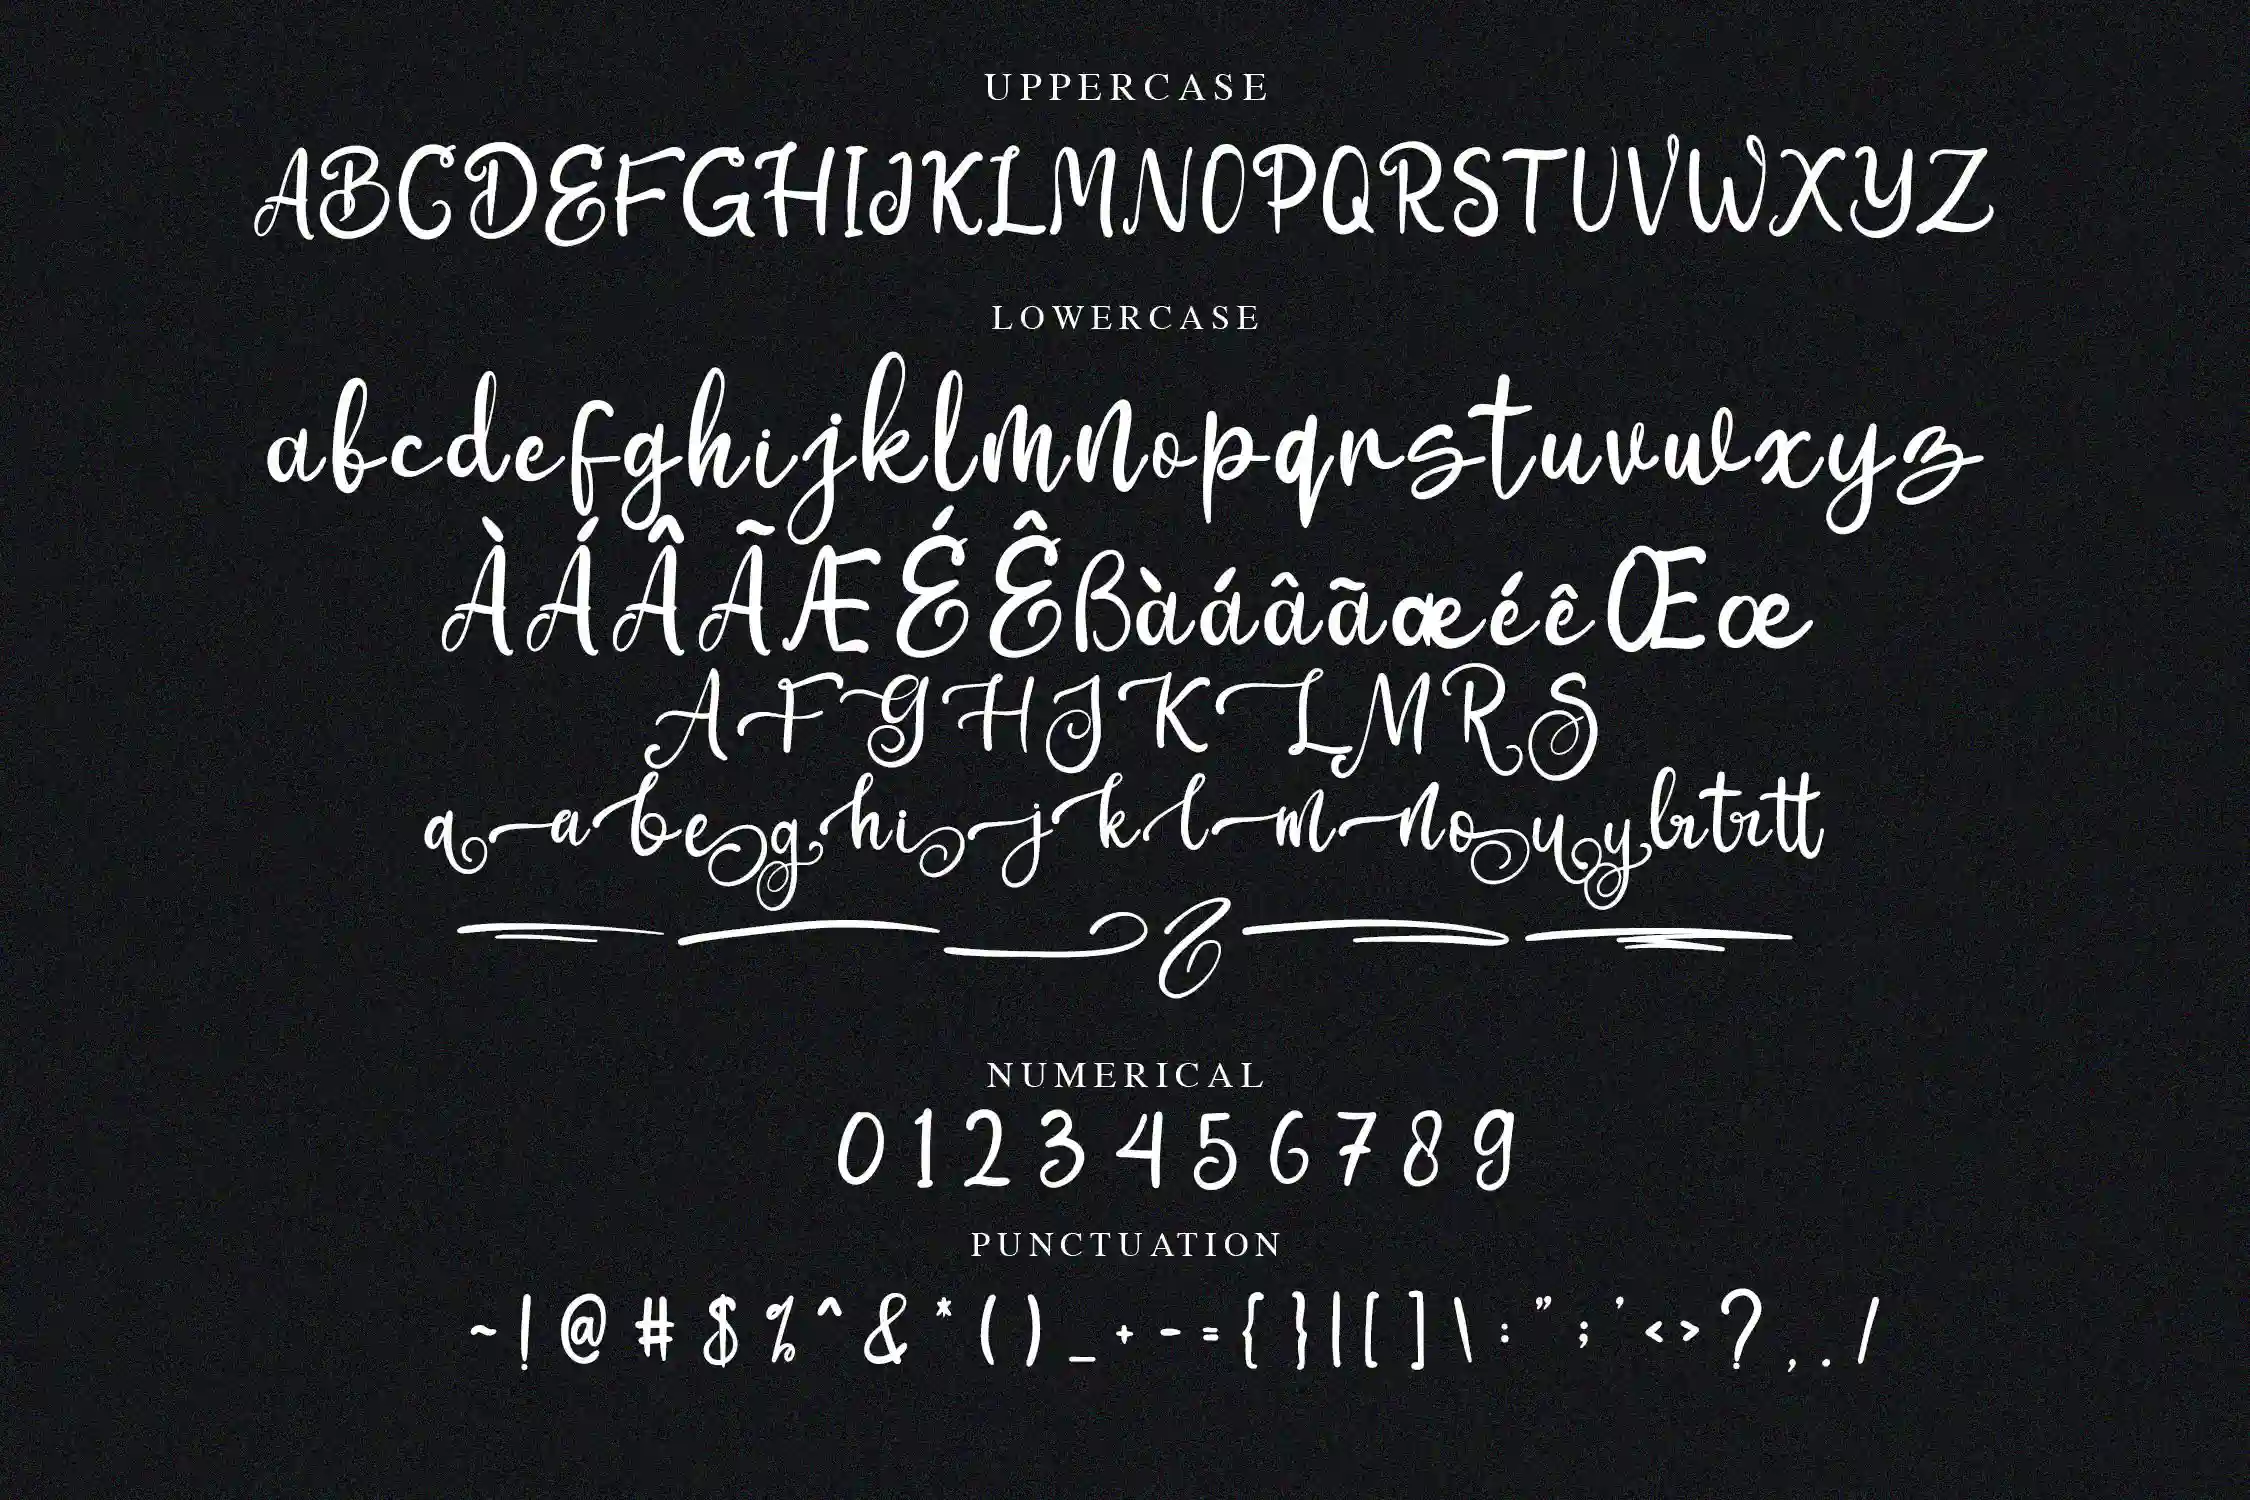 UPPERCASE
ABCDEFGHIJKLMNOPQRSTUVWXYZ
LOWERCASE
abcdefghijklmnopqrstuvwxyz
ÀÁÂÃÆÉÊßàáâãæéêŒœ
AFGHJKLMRS
aabeghijklmnouybrtrtt
NUMERICAL
0123456789
PUNCTUATION
~!@#$%^&*()_+-={}|[]\:";'<>?,./